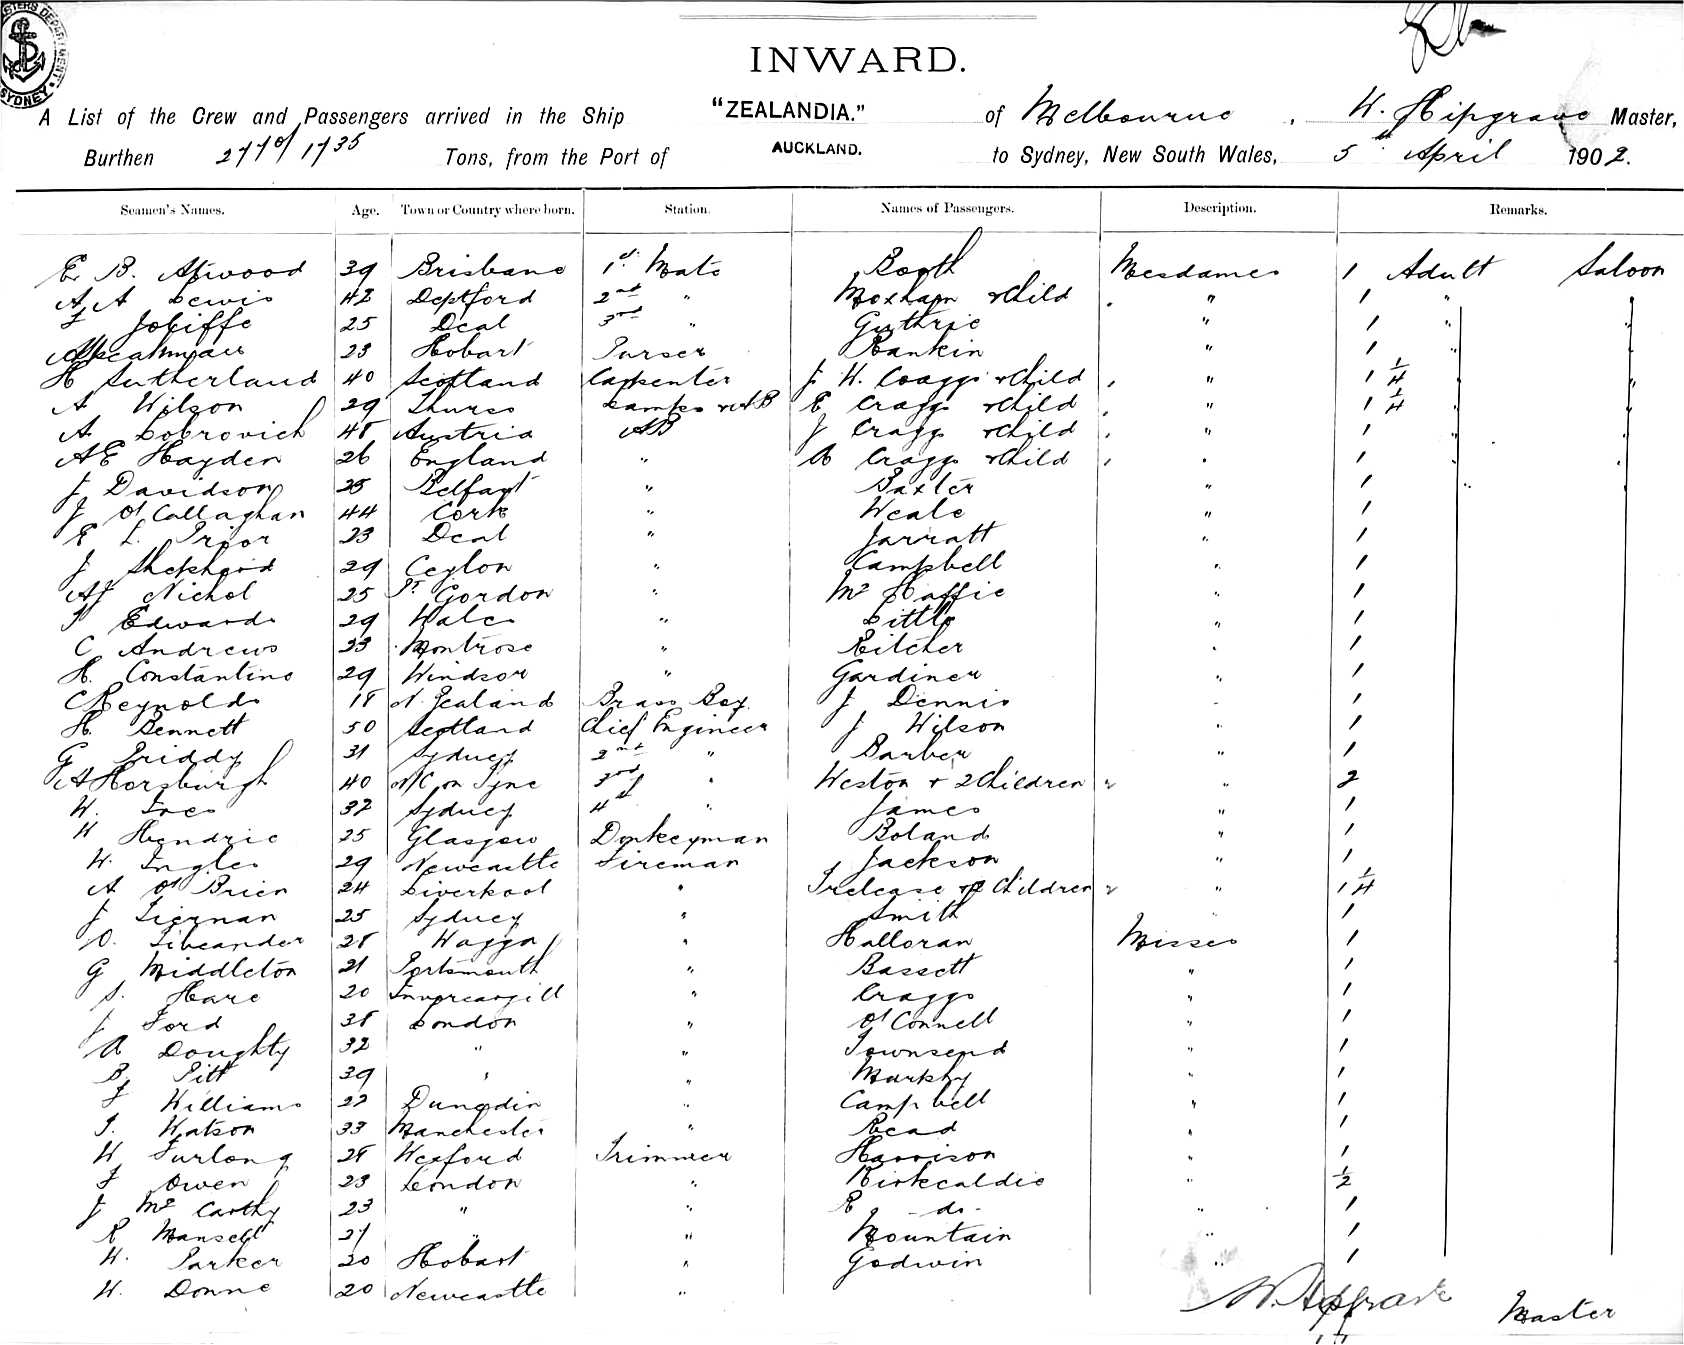 INWARD.
A List of the Crew and Passengers arrived in the Ship "ZEALANDIA." of Melbourne, W. Hipgrave Master,
Burthen 2770/1735 Tons, from the Port of AUCKLAND. to Sydney, New South Wales, 5 April 1902.
Seamen's Names. Age. Town or Country where born. Station. Names of Passengers. Description. Remarks.
E. B. Atwood 39 Brisbane 1st Mate Booth Mesdames 1 Adult Saloon
A A Lewis 42 Deptford 2nd " Moxham & Child " 1 " "
F Joliffe 25 Deal 3rd " Guthrie " 1 " "
23 Hobart Purser Rankin " 1
H Sutherland 40 Scotland Carpenter J. W. Craggs & Child " 1 1/4
A Wilson 29 Thurso Lamps & AB E Craggs & Child " 1 1/4
A Lobrovich 48 Austria AB J Craggs & Child " 1
AE Hayden 26 England " A Craggs & Child " 1
J Davidson 25 Belfast " Baxter " 1
J O'Callaghan 44 Cork " Weale " 1
E L. Prior 23 Deal " Jarratt " 1
J Shepherd 29 Ceylon " Campbell " 1
AJ Nichol 25 Pt Gordon " Mc Haffie " 1
Edwards 29 Wales " Little " 1
C Andrews 33 Montrose " Pitcher " 1
H. Constantine 29 Windsor " Gardiner " 1
C Reynolds 18 N. Zealand Brass Boy. J Dennis " 1
H. Bennett 50 Scotland Chief Engineer J Wilson " 1
G Priddy 31 Sydney 2nd " Barber " 1
A Horsburgh 40 N/C on Tyne 3rd " Weston & 2 Children " 2
W. Ives 32 Sydney 4th " James " 1
W Hendrie 25 Glasgow Donkeyman Boland " 1
W. Ingles 29 Newcastle Fireman Jackson " 1
A O'Brien 24 Liverpool " Trelease & 2 Children " 1 1/4
J Tiernan 25 Sydney " Smith " 1
28 Wagga " Halloran Misses 1
G Middleton 21 Portsmouth " Bassett " 1
S. Hare 20 Invercargill " Craggs " 1
J Ford 38 London " O'Connell " 1
A Doughty 32 " " Townsend " 1
B. Pitt 39 " " Markby " 1
F Williams 22 Dunedin " Campbell " 1
T. Watson 33 Manchester " Read " 1
W Furlong 28 Wexford Trimmer Harrison " 1
F Owen 23 London " Kirkcaldie " 1/2
J McCarthy 23 " " E - do - " 1
R Mansell 21 " " Mountain " 1
W. Parker 20 Hobart " Godwin " 1
W. Donne 20 Newcastle "
W. Hipgrave Master